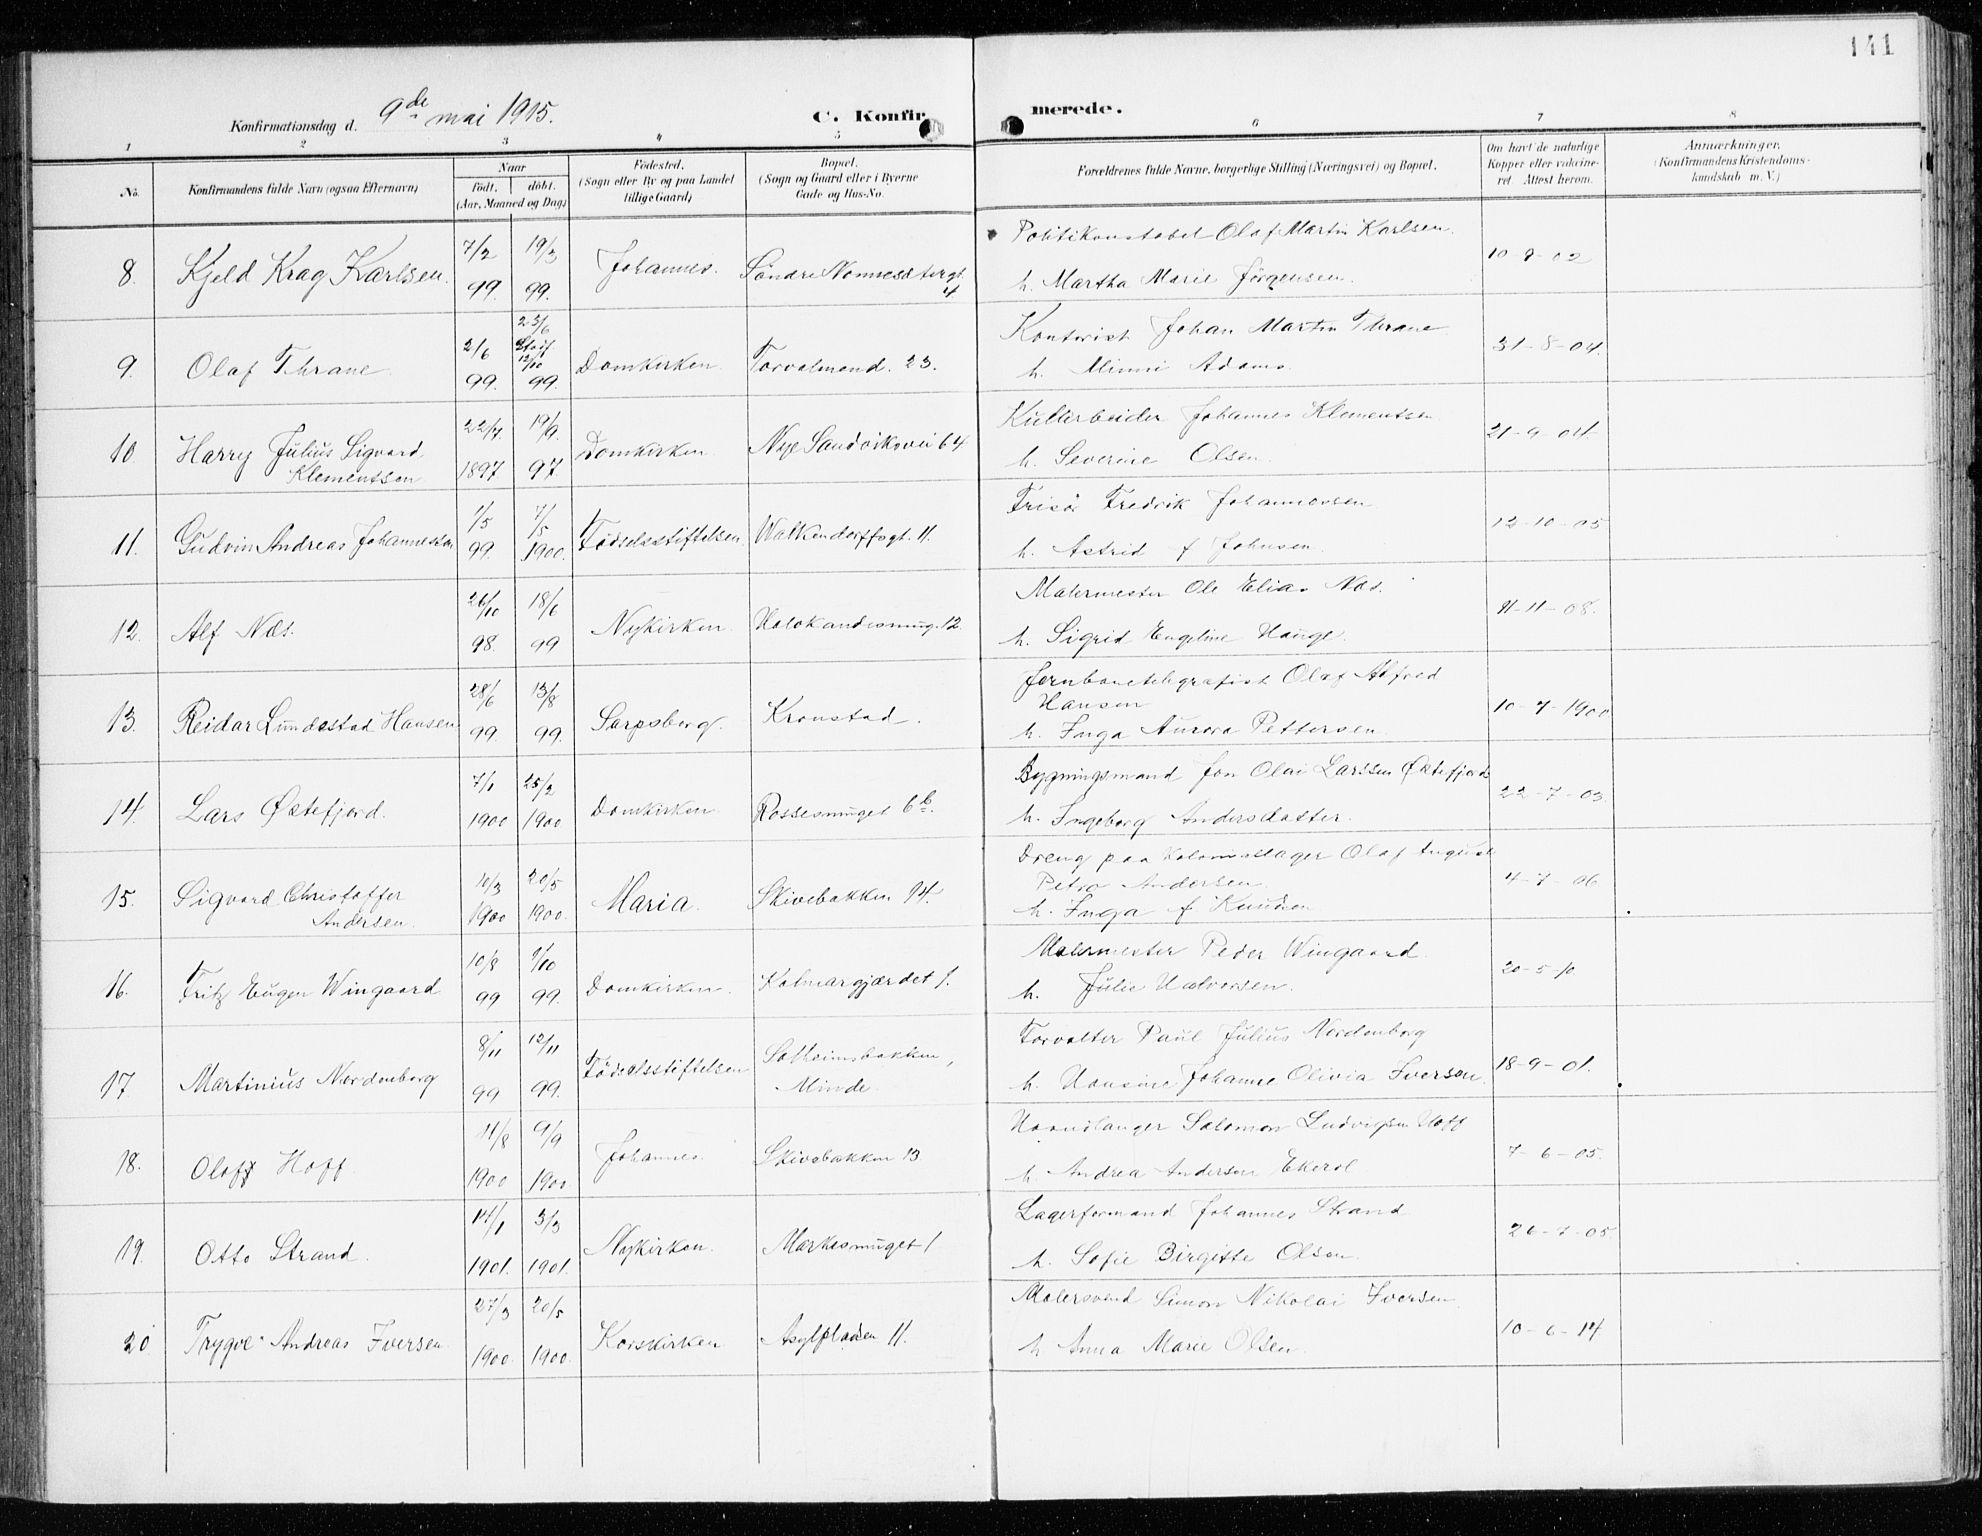 141
Konfirmationsdag d. 9de mai 1915.
C. Konfirmerede.
1 2 3 4 5 6 7 8
No.
Konfirmandens fulde Navn (ogsaa Efternavn)
Naar
født, døbt.
(Aar, Maaned og Dag)
Fødested.
(Sogn eller By og paa Landet
tillige Gaard)
Bopæl.
(Sogn og Gaard eller i Byerne
Gade og Hus-No.
Forældrenes fulde Navne, borgerlige Stilling (Næringsvei) og Bopæl.
Om havt de naturlige
Kopper eller vakcine-
ret. Attest herom.
Anmærkninger.
(Konfirmandens Kristendoms-
kundskab m. V.)
8. Kjeld Krag Karlsen. 7/2 99. 19/3 99. Johannes. Søndre 4
Politikonstabel Olaf Martin Karlsen.
h. Martha Marie Jørgensen. 10-9-02
9. Olaf Thrane. 2/6 99. 23/6 12/10 99. Domkirken. Torvalmend. 23.
Kontorist Johan Martin Thrane
h. Minni Adams. 31-8-04.
10. Harry Julius Sigvard
Klementsen 22/7 1897 19/9. 97. Domkirken. Nye Sandviksvei 64
Kullarbeider Johannes Klementsen
h. Severine Olsen. 21-9-04.
11. Gudvin Andreas Johannessen 1/5 99. 7/5 1900. Fødselsstiftelsen. Walkendorffsgt. 11.
Frisør Fredrik Johannessen
h. Astrid f Johnsen. 12-10-05
12. Alf Næs. 26/10 98. 18/6 99 Nykirken. 12.
Malermester Ole Elias Næs.
h. Sigrid Engeline Hauge. 11-11-08.
13. Reidar Lundestad Hansen 28/6 99. 13/8 99. Sarpsborg. Kronstad.
Jernbanetelegrafist Olaf Alfred
Hansen
h. Inga Aurora Pettersen. 10-7-1900
14. Lars Østefjord. 7/1 1900 25/2 1900. Domkirken. Rossesmuget 6b.
Bygningsmand Jon Olai Larssen Østefjord
h. Ingeborg Andersdatter. 22-7-03.
15. Sigvard Christoffer
Andersen. 10/3 1900 20/5 1900. Maria. Skivebakken 14.
Dreng paa Koloniallager Olaf August
Petro Andersen.
h. Inga f Knudsen 4-7-06
16. Fritz Eugen Wingaard. 10/8 99 1/10 99. Domkirken. Kalmargjærdet 1.
Malermester Peder Wingaard.
h. Julie Halvorsen. 20-5-10
17. Martinius Nordenborg 8/11 99 12/11 99. Fødselsstiftelsen Solheimsbakken,
Minde.
Forvalter Paul Julius Nordenborg
h. Hansine Johanne Olivia Iversen. 18-9-01.
18. Olaf Hoff. 11/8 1900 9/9 1900. Johannes. Skivebakken 13
Haandlanger Salomon Ludvigsen Hoff
h. Andrea Andersen Ekerol 7-6-05.
19. Otto Strand. 14/1 1901. 3/3 1901. Nykirken. Markesmuget 1
Lagerformand Johannes Strand
h. Sofie Birgitte Olsen. 26-7-05.
20 Trygve Andreas Iversen. 27/3 1900. 20/5 1900. Korskirken Asylpladsen 11.
Malersvend Simon Nikolai Iversen
h Anna Marie Olsen. 10-6-14